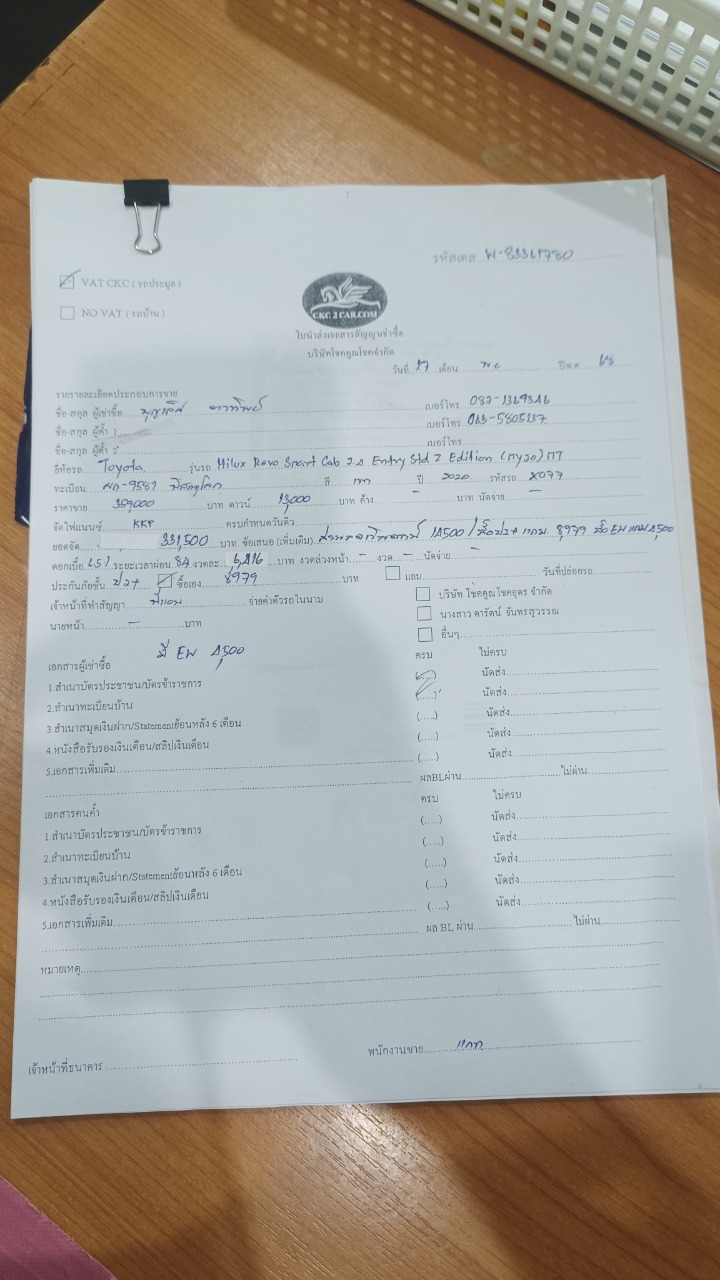 รหัสเคส W-83361780
VAT CKC ( รถประมูล )
NO VAT ( รถบ้าน )
CKC 2 CAR.COM
ใบนำส่งเอกสารสัญญาเช่าซื้อ
บริษัทโชคคูณโชคจำกัด
วันที่ 27 เดือน พย ปีพ.ศ 68
รายรายละเอียดประกอบการขาย
ชื่อ-สกุล ผู้เช่าซื้อ เบอร์โทร 082-1369346
ชื่อ-สกุล ผู้ค้ำ 1 เบอร์โทร 063-5805137
ชื่อ-สกุล ผู้ค้ำ 2 เบอร์โทร
ยี่ห้อรถ Toyota รุ่นรถ Hilux Revo Smart Cab 2.4 Entry Std Z Edition (my20) MT
ทะเบียน ผก-9581 พิษณุโลก สี เทา ปี 2020 รหัสรถ X077
ราคาขาย 359,000 บาท ดาวน์ 13,000 บาท ค้าง - บาท นัดจ่าย -
จัดไฟแนนซ์ KKP ครบกำหนดวันดิว
ยอดจัด 331,500 บาท ข้อเสนอ (เพิ่มเติม) 14500 / ซื้อป2+ แถม 8,979 ซื้อ EW แถม 4,500
ดอกเบี้ย ระยะเวลาผ่อน 84 งวดละ 6,216 บาท งวดล่วงหน้า - งวด - นัดจ่าย -
ประกันภัยชั้น ป2+ ซื้อเอง 8979 บาท แถม วันที่ปล่อยรถ
เจ้าหน้าที่ทำสัญญา จ่ายค่าตัวรถในนาม บริษัท โชคคูณโชคอุดร จำกัด
นายหน้า - บาท นางสาว ดารัตน์ จันทรสุวรรณ
อื่นๆ
มี EW 4,500
เอกสารผู้เช่าซื้อ ครบ ไม่ครบ
1.สำเนาบัตรประชาชน/บัตรข้าราชการ (.....) นัดส่ง
2.สำเนาทะเบียนบ้าน (.....) นัดส่ง
3.สำเนาสมุดเงินฝาก/Statementย้อนหลัง 6 เดือน (.....) นัดส่ง
4.หนังสือรับรองเงินเดือน/สลิปเงินเดือน (.....) นัดส่ง
5.เอกสารเพิ่มเติม (.....) นัดส่ง
ผลBLผ่าน ไม่ผ่าน
เอกสารคนค้ำ ครบ ไม่ครบ
1.สำเนาบัตรประชาชน/บัตรข้าราชการ (.....) นัดส่ง
2.สำเนาทะเบียนบ้าน (.....) นัดส่ง
3.สำเนาสมุดเงินฝาก/Statementย้อนหลัง 6 เดือน (.....) นัดส่ง
4.หนังสือรับรองเงินเดือน/สลิปเงินเดือน (.....) นัดส่ง
5.เอกสารเพิ่มเติม (.....) นัดส่ง
ผล BL ผ่าน ไม่ผ่าน
หมายเหตุ
เจ้าหน้าที่ธนาคาร พนักงานขาย